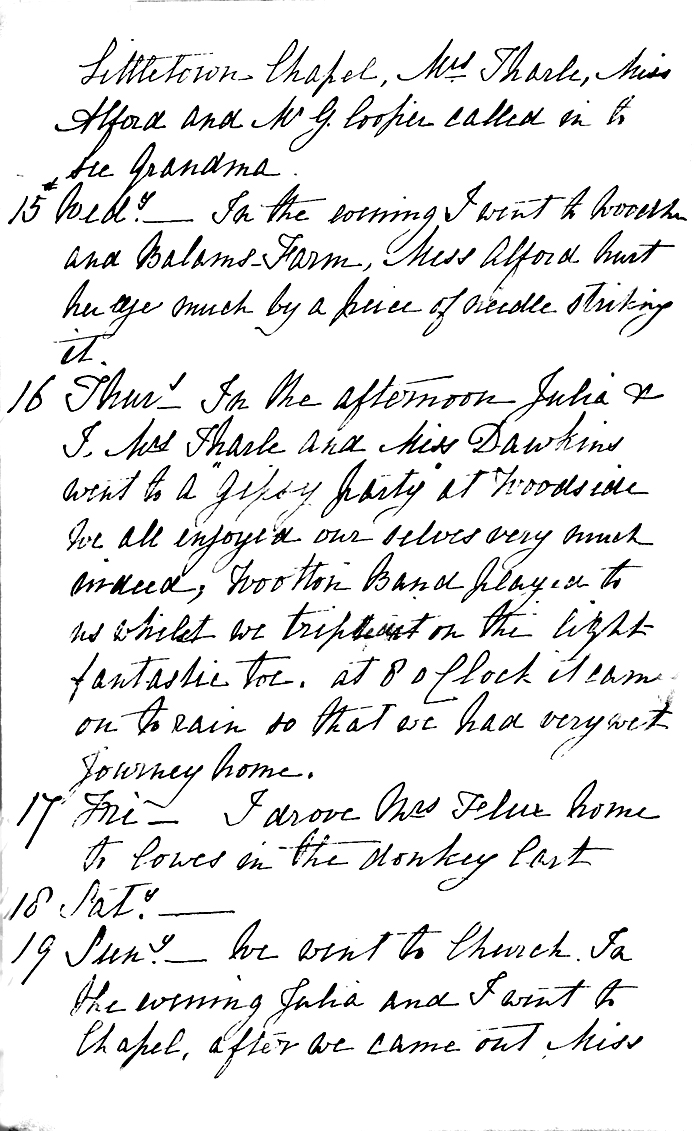 Littletown Chapel, Mrs Tharle, Miss
Alford and Mr G. Cooper called in to
see Grandma.
15 Wedy. — In the evening I went to
and Balams Farm, Miss Alford hurt
her eye much by a piece of needle striking
it.
16 Thurs — In the afternoon Julia &
I. Mrs Tharle and Miss Dawkins
went to a "Gipsy party" at Woodside
We all enjoyed our selves very much
indeed, Wootton Band played to
us whilst we on the light
fantastic toe. at 8 oClock it came
on to rain so that we had very wet
Journey home.
17 Fri — I drove Mrs home
to Cowes in the donkey Cart
18 Saty. —
19 Suny. — We went to Church. In
the evening Julia and I went to
Chapel, after we came out Miss